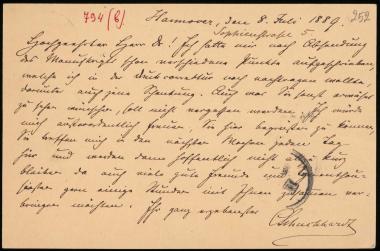 794 (6)
252
Hannover, den 8. Juli 1889.
Sophienstraße 5
Hochgeehrter Herr Dr! Ich hatte mir nach Absendung
des Manuskripts schon verschiedene Punkte aufgeschrieben,
welche ich in der Druckcorrektur noch nachtragen wollte,
darunter auch jene Schenkung. Auch was Sie sonst erwähnt
zu sehen wünschen, soll nicht vergessen werden. Ich würde
mich außerordentlich freuen, Sie hier begrüßen zu können,
Sie treffen mich in den nächsten Wochen jeden Tag
hier und werden dann hoffentlich nicht allzu kurz
bleiben da auch viele gute Freunde und
gern einige Stunden mit Ihnen zusammen ver-
bringen möchten. Ihr ganz ergebenster
C Schuchhardt